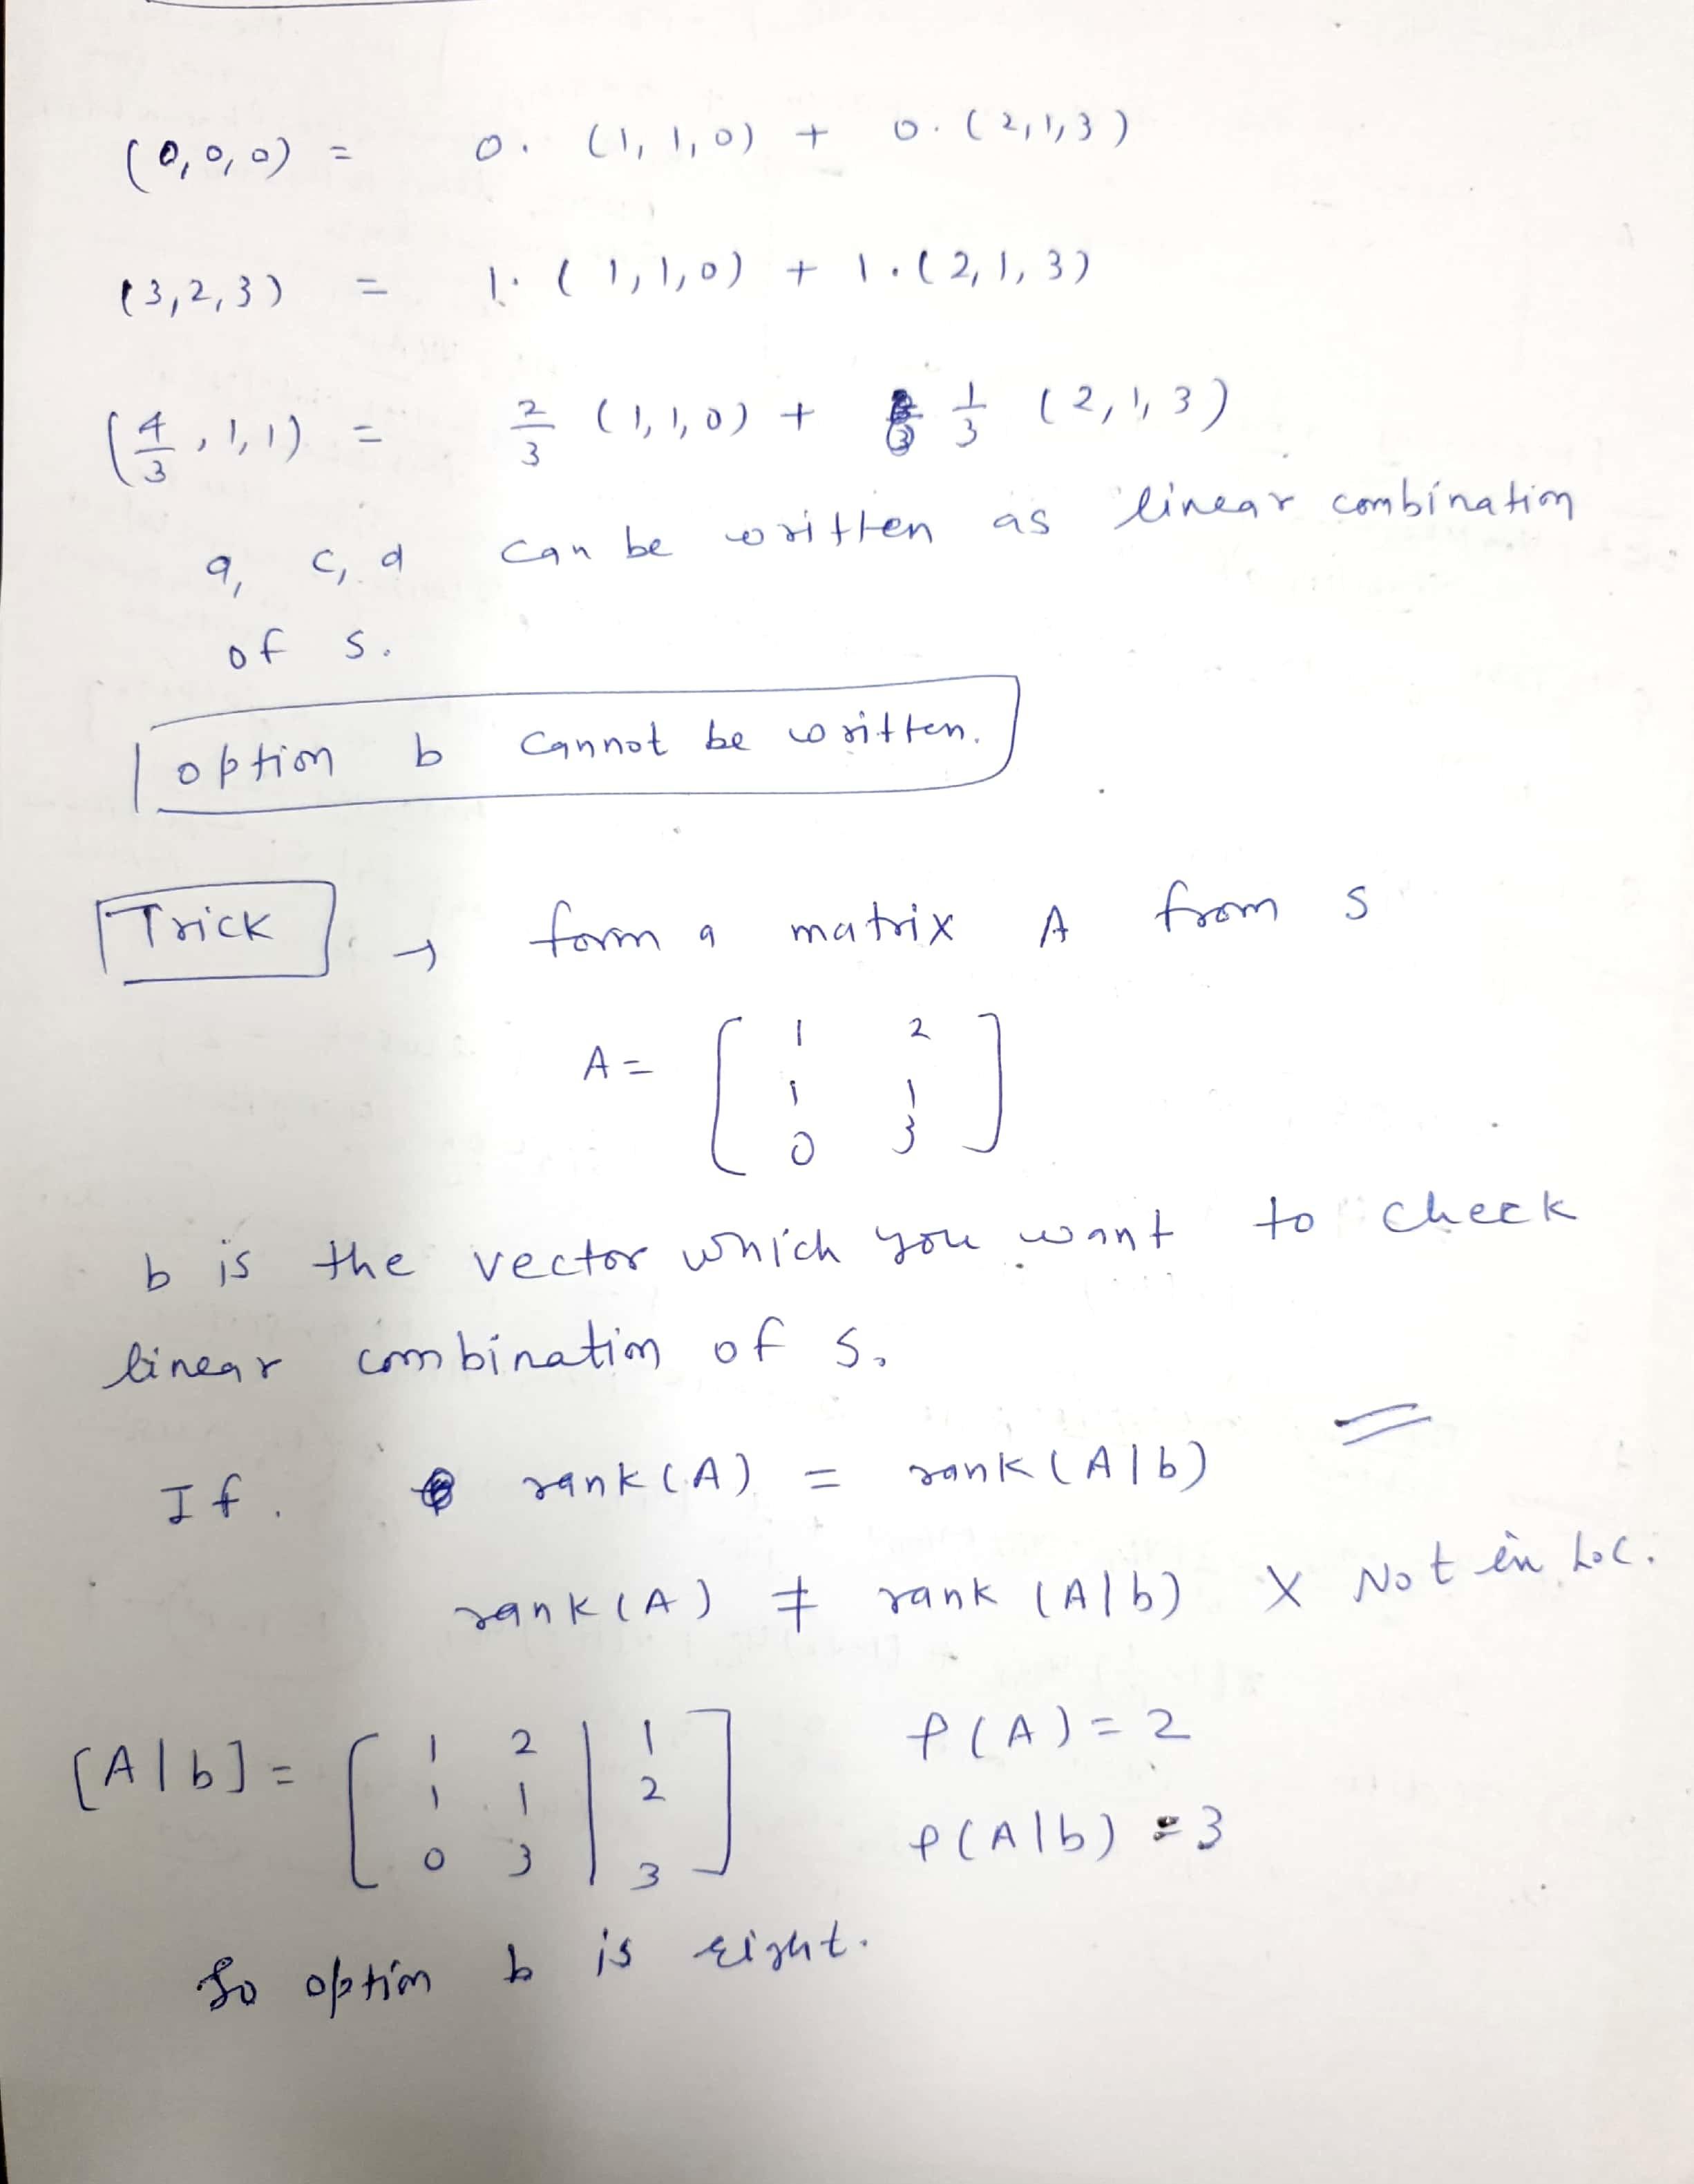 (0,0,0) = 0. (1,1,0) + 0. (2,1,3)
(3,2,3) = 1. (1,1,0) + 1.(2,1,3)
(4/3,1,1) = 2/3 (1,1,0) + 1/3 (2,1,3)
a, c, d can be written as linear combination
of S.
option b cannot be written.
Trick → form a matrix A from S
A = [1 2
1 1
0 3]
b is the vector which you want to check
linear combination of S.
If. rank(A) = rank(A|b)
rank(A) ≠ rank(A|b) X Not in L.C.
[A|b] = [1 2 | 1
1 1 | 2
0 3 | 3]
ρ(A) = 2
ρ(A|b) = 3
So option b is right.